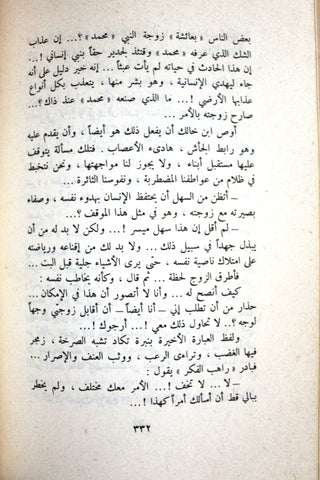 بعض الناس « بعائشة » زوجة النبي « محمد » ؟... إن عذاب
الشك الذي عرفه « محمد » وقتئذ لجدير حقاً بنبي إنساني !...
إن هذا الحادث في حياته لم يأت عبثاً... إنه خير دليل على أنه
جاء ليهدي الإنسانية ، وهو بشر منها ، يتعذب بكل أنواع
عذابها الأرضي !... ما الذي صنعه « محمد » عند ذاك ؟...
صارح زوجته بالأمر ...
أوص ابن خالك أن يفعل ذلك هو أيضاً ، وأن يقدم عليه
وهو رابط الجأش ، هادىء الأعصاب . فتلك مسألة يتوقف
عليها مستقبل أبناء ، ولا يجوز لنا مواجهتها ، ونحن نتخبط
في ظلام من عواطفنا المضطربة ، ونفوسنا الثائرة ...
ـ أتظن من السهل أن يحتفظ الإنسان بهدوء نفسه ، وصفاء
بصيرته مع زوجته ، وهو في مثل هذا الموقف ؟..
ـ لم أقل إن هذا سهل ميسر !... ولكن لا بد له من أن
يبذل جهداً في سبيل ذلك ... ولا بد لك من إقناعه ورياضته
على امتلاك ناصية نفسه ، حتى يرى الأشياء جلية قبل البت ...
فأطرق الزوج لحظة ... ثم قال ، وكأنه يخاطب نفسه :
كيف أنصح له ... وأنا لا أتصور أن هذا في الإمكان ...
حذار من أن تطلب إلي ـ أنا أيضاً ـ أن أقابل زوجتي وجهاً
لوجه ؟.. لا تحاول ذلك معي !... أرجوك !...
ولفظ العبارة الأخيرة بنبرة تكاد تشبه الصرخة ، زمجر
فيها الغضب ، وتراءى الرعب ، ووثب العنف والإصرار ...
فبادر « راهب الفكر » يقول :
ـ لا ... لا تخف !... الأمر معك مختلف ، ولم يخطر
ببالي قط أن أسألك أمراً كهذا !...
٣٣٢